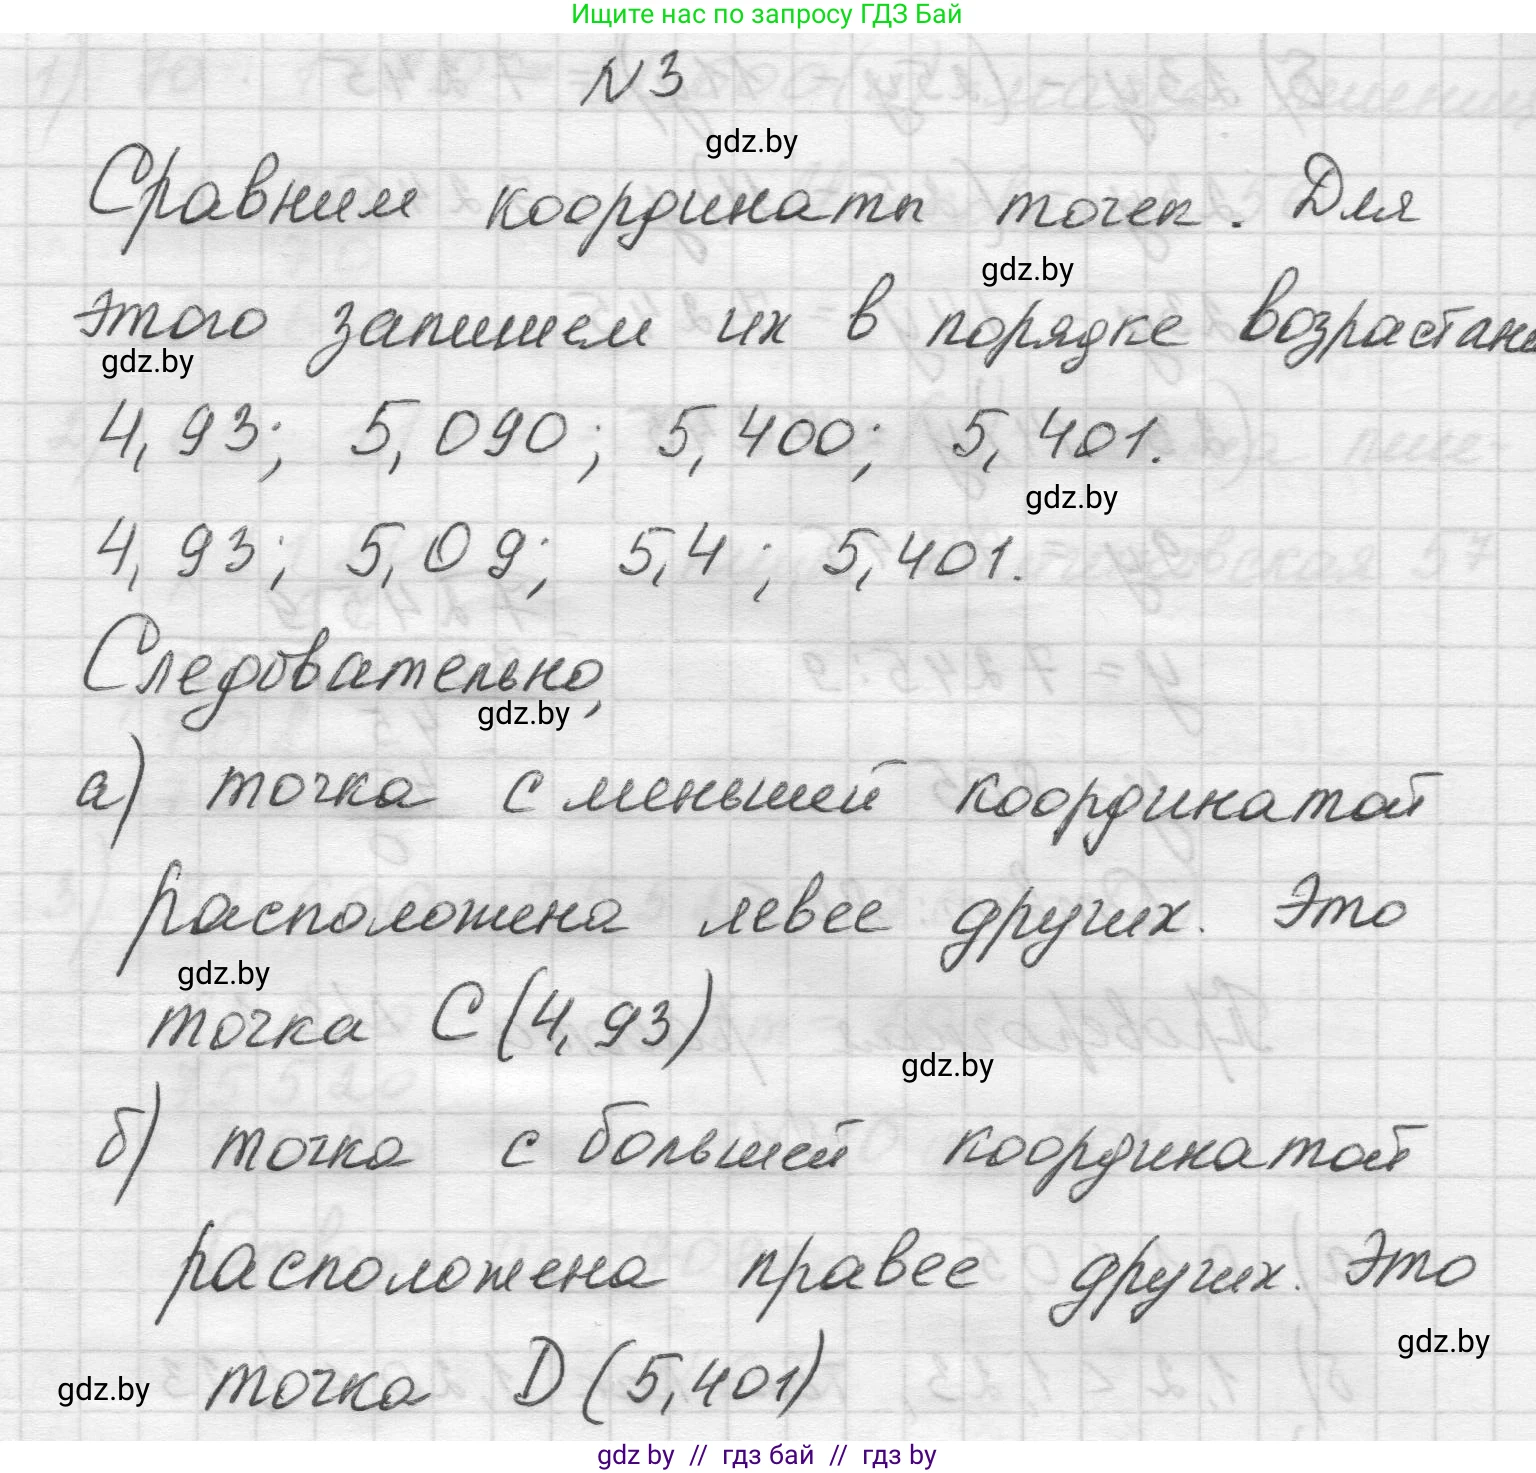 Ищите нас по запросу ГДЗ Бай
N 3
gdz.by
Сравним координаты точек. Для
gdz.by
этого запишем их в порядке возрастани
gdz.by
4,93; 5,090; 5,400; 5,401.
gdz.by
4,93; 5,09; 5,4; 5,401.
Следовательно,
gdz.by
а) точка с меньшей координатой
расположена левее других. Это
gdz.by
точка С (4,93)
gdz.by
б) точка с большей координатой
расположена правее других. Это
gdz.by
gdz.by
точка D (5,401)
gdz by // гдз бай // гдз by